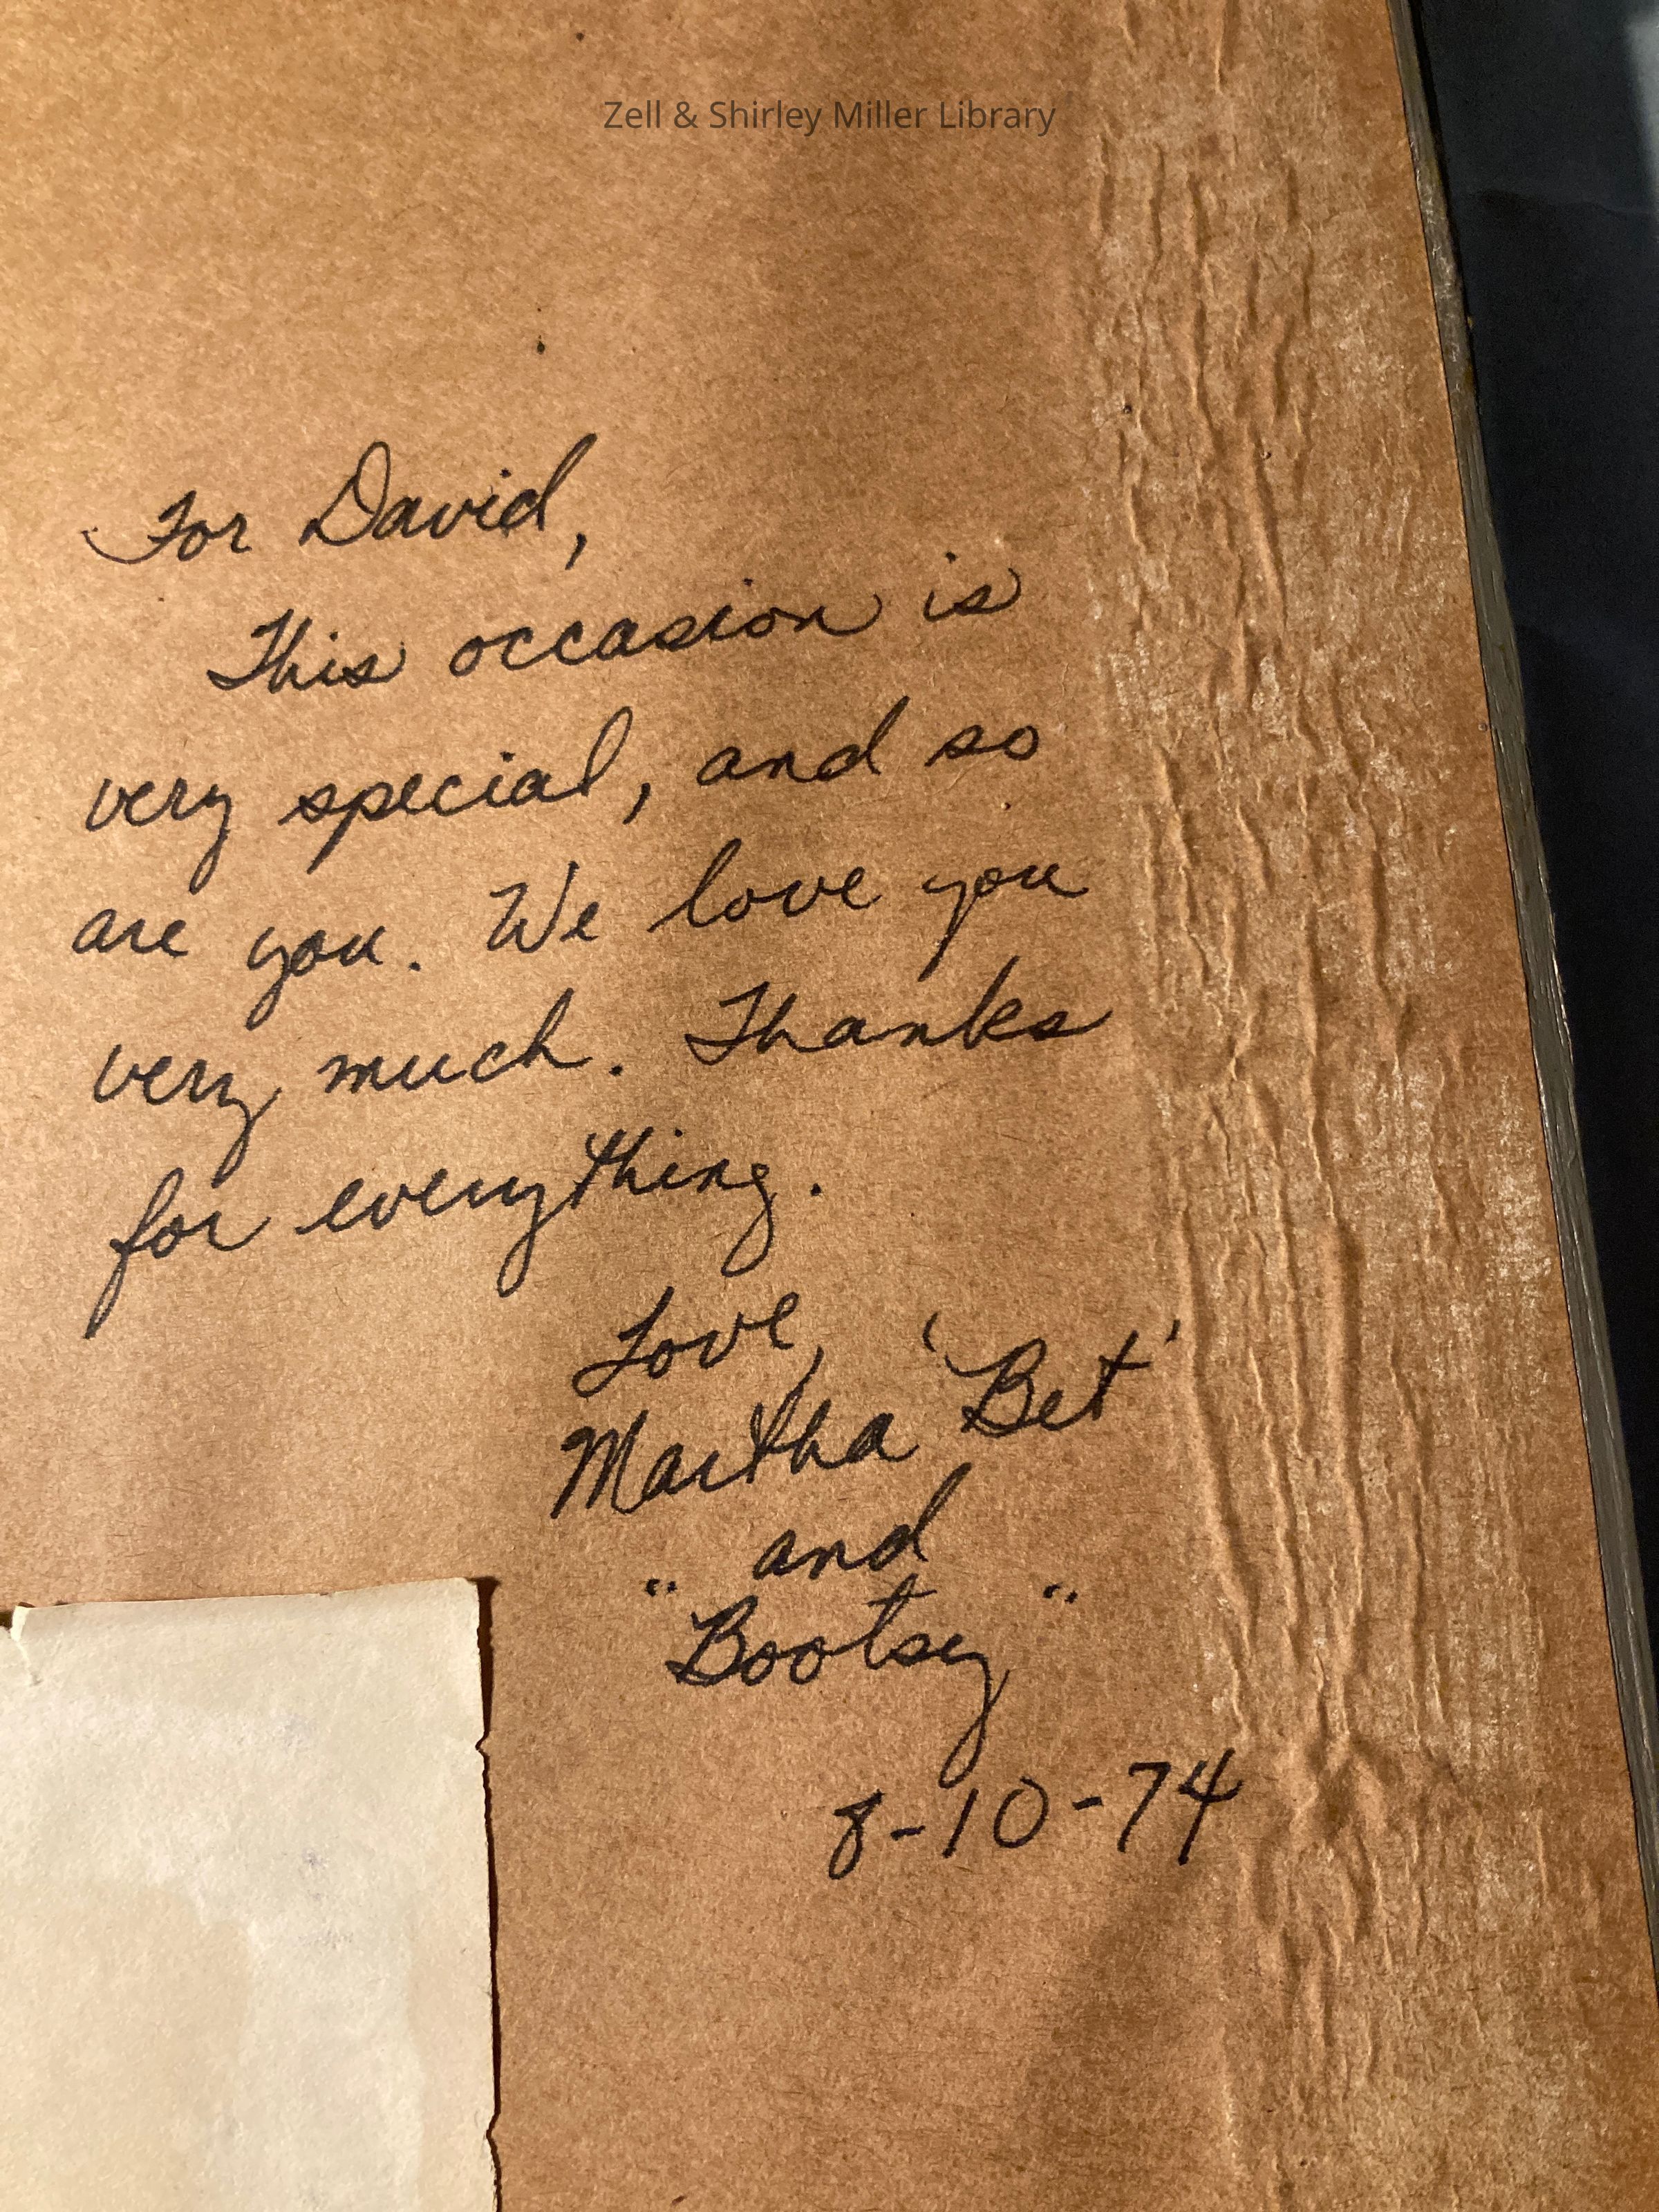 Zell & Shirley Miller Library
For David,
This occasion is
very special, and so
are you. We love you
very much. Thanks
for everything.
Love,
Martha 'Bet'
and
"Bootsy"
8-10-74